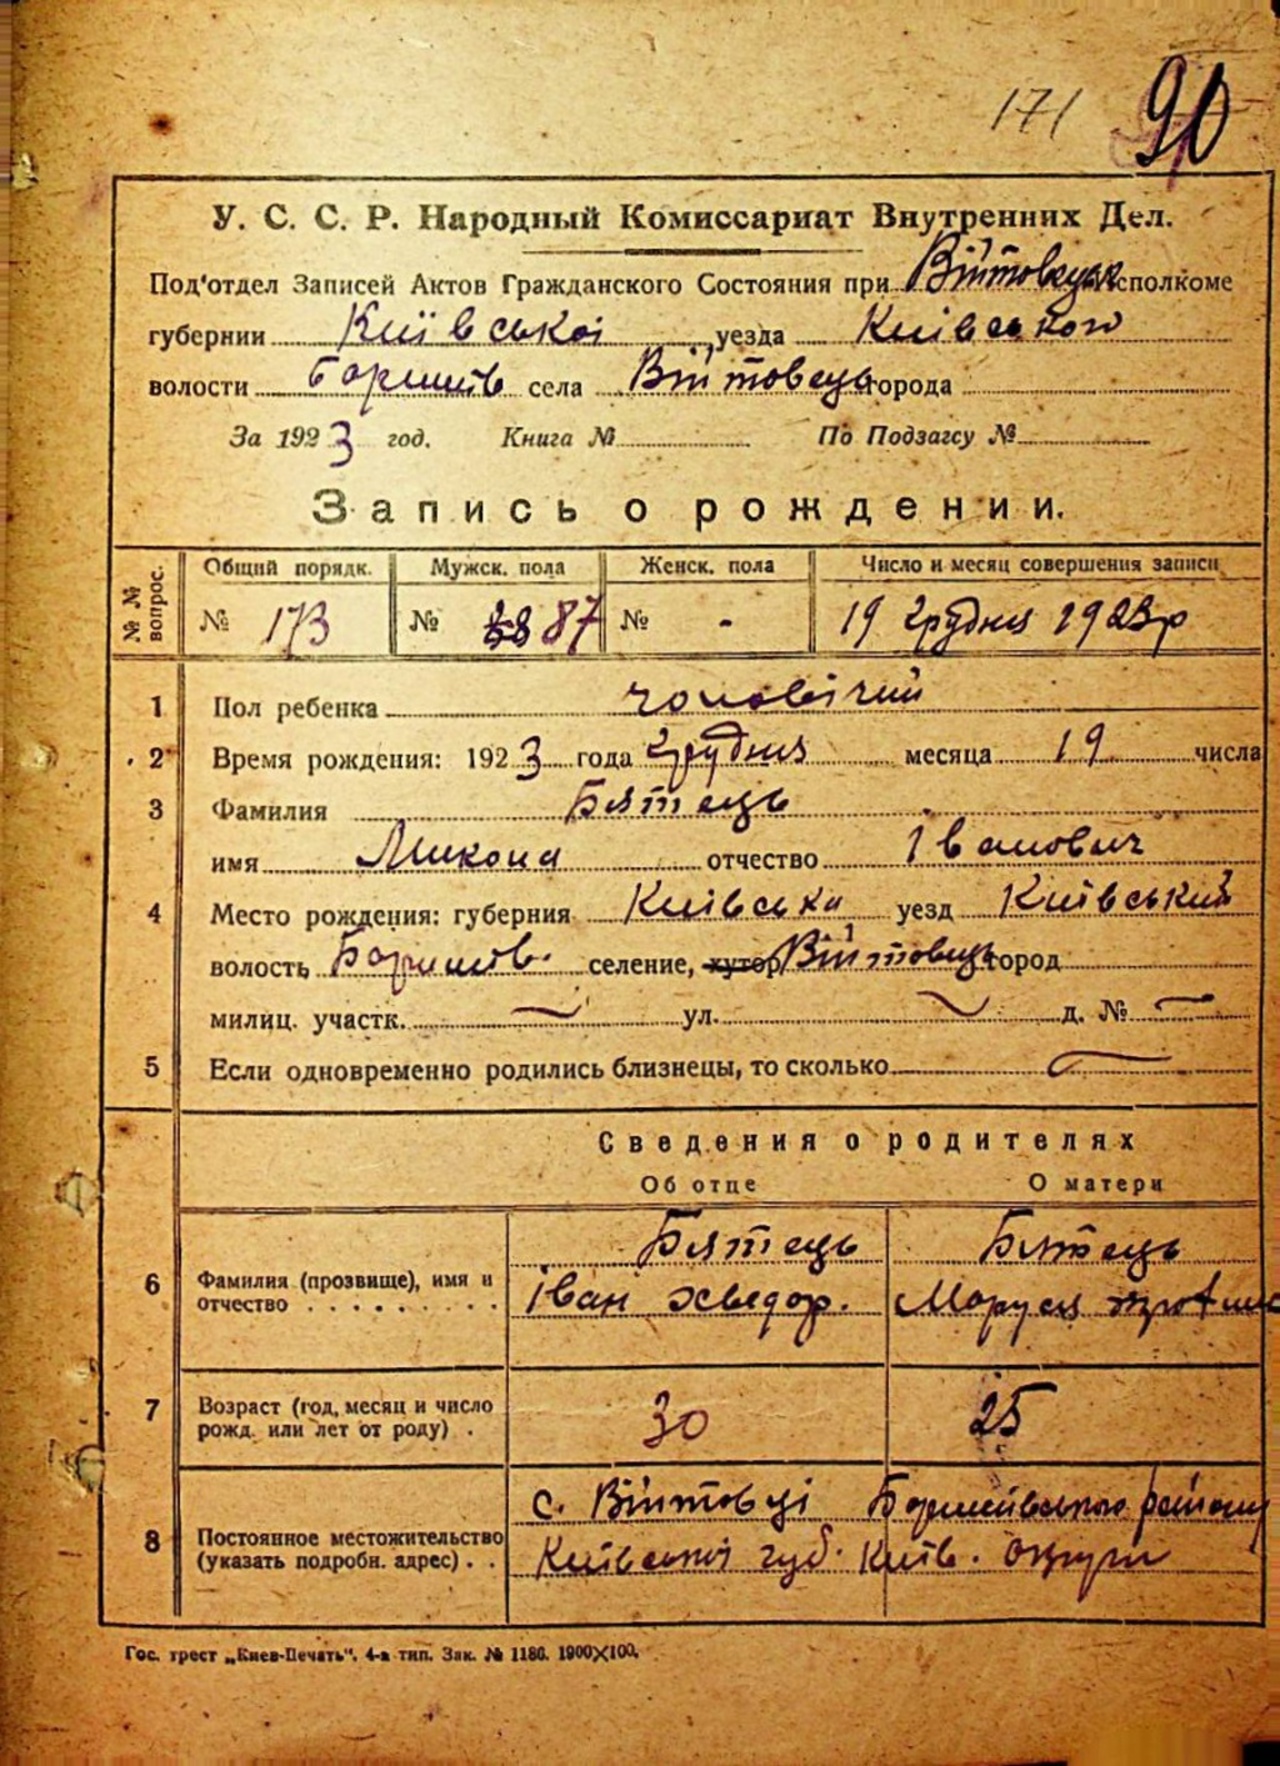 171 90
У. С. С. Р. Народный Комиссариат Внутренних Дел.
Под'отдел Записей Актов Гражданского Состояния при Війтовецьк исполкоме
губернии Київської уезда Київського
волости Баришів села Війтовець города
За 1923 год. Книга № По Подзагсу №
Запись о рождении.
№ № вопрос. Общий порядк. Мужск. пола Женск. пола Число и месяц совершения записи
№ 173 № 87 № - 19 грудня 1923 р
1 Пол ребенка чоловічий
2 Время рождения: 1923 года грудня месяца 19 числа
3 Фамилия Бятець
имя Микола отчество Іванович
4 Место рождения: губерния Київська уезд Київський
волость Баришів. селение, хутор Війтовець город
милиц. участк. ул. д. №
5 Если одновременно родились близнецы, то сколько
Сведения о родителях
Об отце О матери
Бятець Бятець
6 Фамилия (прозвище), имя и отчество . . . . . . . . . Іван Хведор. Маруся
7 Возраст (год, месяц и число рожд. или лет от роду) . 30 25
с. Війтовці Баришівського району
8 Постоянное местожительство (указать подробн. адрес) . . Київської губ. Київ. округи
Гос. трест „Киев-Печать“. 4-а тип. Зак. № 1186. 1900×100.